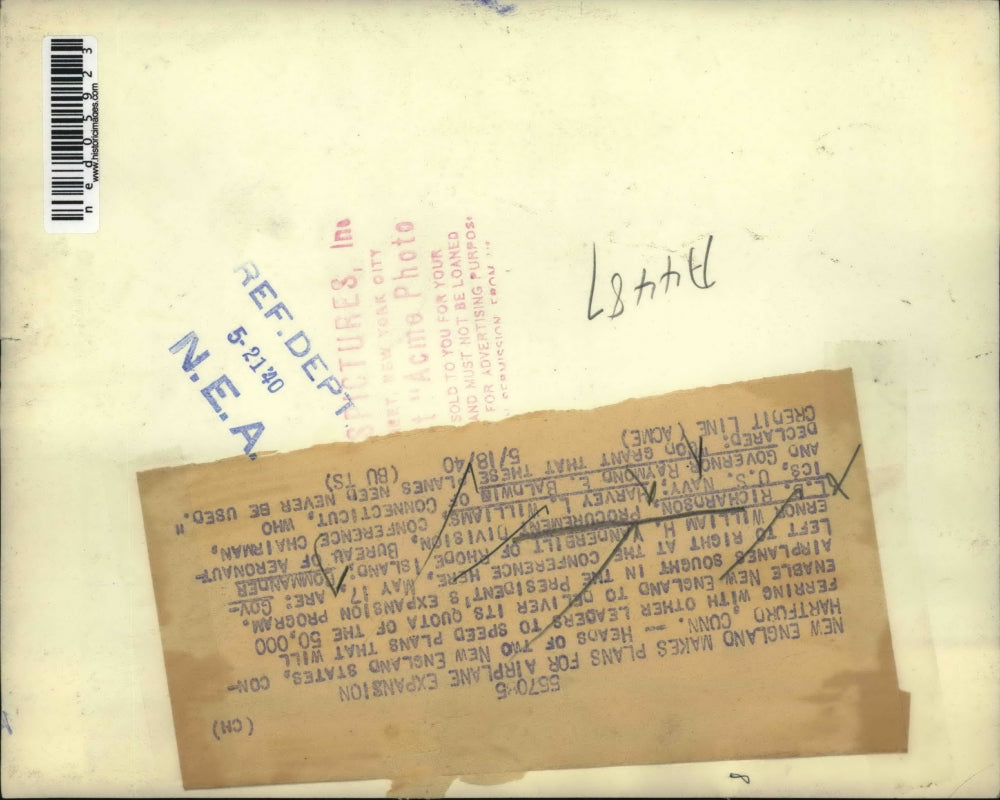 n e d 0 5 9 2 3
www.historicimages.com
REF. DEPT
5-21'40
N. E. A.
SPICTURES, Inc
EET, NEW YORK CITY
t "Acme Photo
SOLD TO YOU FOR YOUR
AND MUST NOT BE LOANED
FOR ADVERTISING PURPOS
FROM
A4487
(CH)
5570-5
NEW ENGLAND MAKES PLANS FOR AIRPLANE EXPANSION
HARTFORD, CONN. -- HEADS OF TWO NEW ENGLAND STATES, CON-
FERRING WITH OTHER LEADERS TO SPEED PLANS THAT WILL
ENABLE NEW ENGLAND TO DELIVER ITS QUOTA OF THE 50,000
AIRPLANES SOUGHT IN THE PRESIDENT'S EXPANSION PROGRAM.
LEFT TO RIGHT AT THE CONFERENCE, HERE, MAY 17, ARE: GOV-
ERNOR WILLIAM H. VANDERBILT OF RHODE ISLAND; COMMANDER
RICHARDSON, PROCUREMENT DIVISION, BUREAU OF AERONAUT-
ICS, U.S. NAVY; HARVEY L. WILLIAMS, CONFERENCE CHAIRMAN,
AND GOVERNOR RAYMOND E. BALDWIN OF CONNECTICUT, WHO
DECLARED: "GOD GRANT THAT THESE PLANES NEED NEVER BE USED."
CREDIT LINE (ACME) 5/18/40 (BU TS)